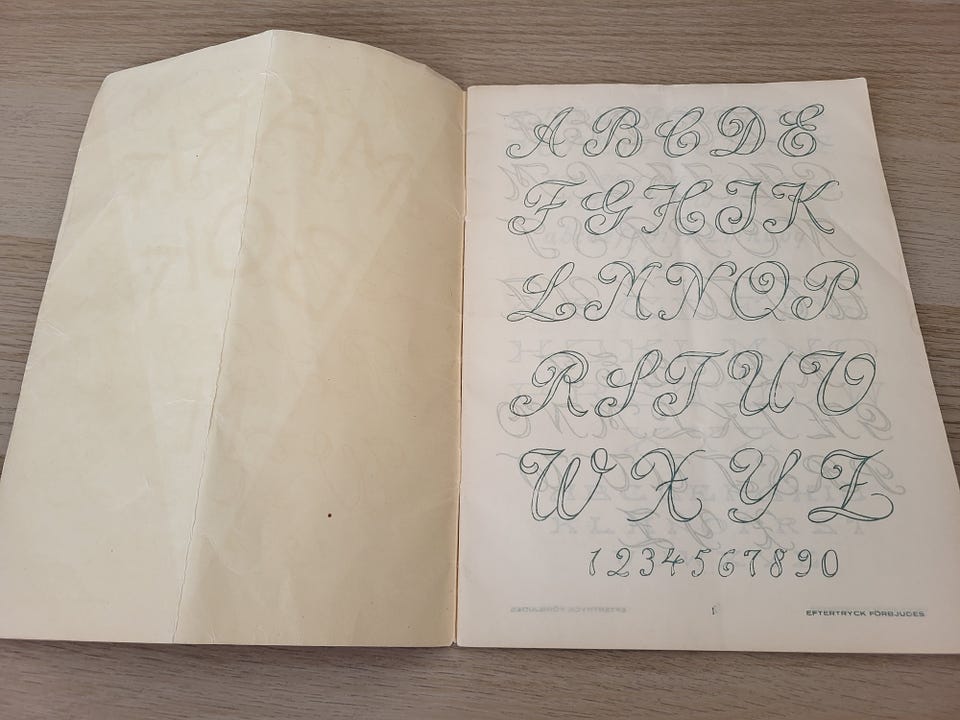 A B C D E
F G H I K
L M N Q P
R S T U V
W X Y Z
1 2 3 4 5 6 7 8 9 0
EFTERTRYCK FÖRBJUDES